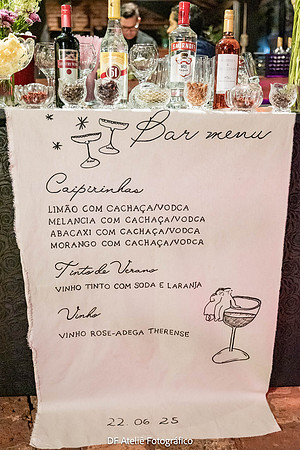 SMIRNOFF
51
SMIRNOFF
Bar menu
Caipirinhas
LIMÃO COM CACHAÇA/VODCA
MELANCIA COM CACHAÇA/VODCA
ABACAXI COM CACHAÇA/VODCA
MORANGO COM CACHAÇA/VODCA
Tinto de Verano
VINHO TINTO COM SODA E LARANJA
Vinho
VINHO ROSE-ADEGA THERENSE
22.06.25
DF Ateliê Fotográfico